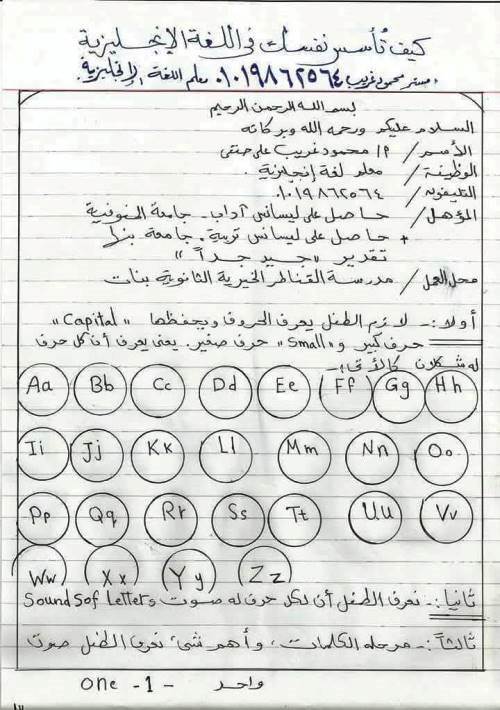 كيف تأسس نفسك فى اللغة الإنجليزية
مستر محمود غريب ٠١٠١٩٨٦٢٥٦٤ معلم اللغة الإنجليزية
بسم الله الرحمن الرحيم
السلام عليكم ورحمه الله وبركاته
الأسم / م/ محمود غريب على حنفى
الوظيفة / معلم لغة إنجلزية .
التليفونه / ٠١٠١٩٨٦٢٥٦٤
المؤهل / حاصل على ليسانس آداب - جامعة المنوفية
+ حاصل على ليسانس تربية . جامعة بنها
تقدير "جيد جداً"
محل العمل / مدرسة القناطر الخيرية الثانوية بنات
أولا :- لازم الطفل يعرف الحروف ويحفظها "Capital"
حرف كبير و "Small" حرف صغير. يعنى يعرف أن كل حرف
له شكلان كالآتى :-
Aa Bb Cc Dd Ee Ff Gg Hh
Ii Jj Kk Ll Mm Nn Oo
Pp Qq Rr Ss Tt Uu Vv
Ww Xx Yy Zz
ثانيا :- نعرف الطفل أن لكل حرف له صوت Sounds of Letters
ثالثاً :- مرحله الكلمات ، وأهم شئ نعرف الطفل صوت
one - 1 - واحد